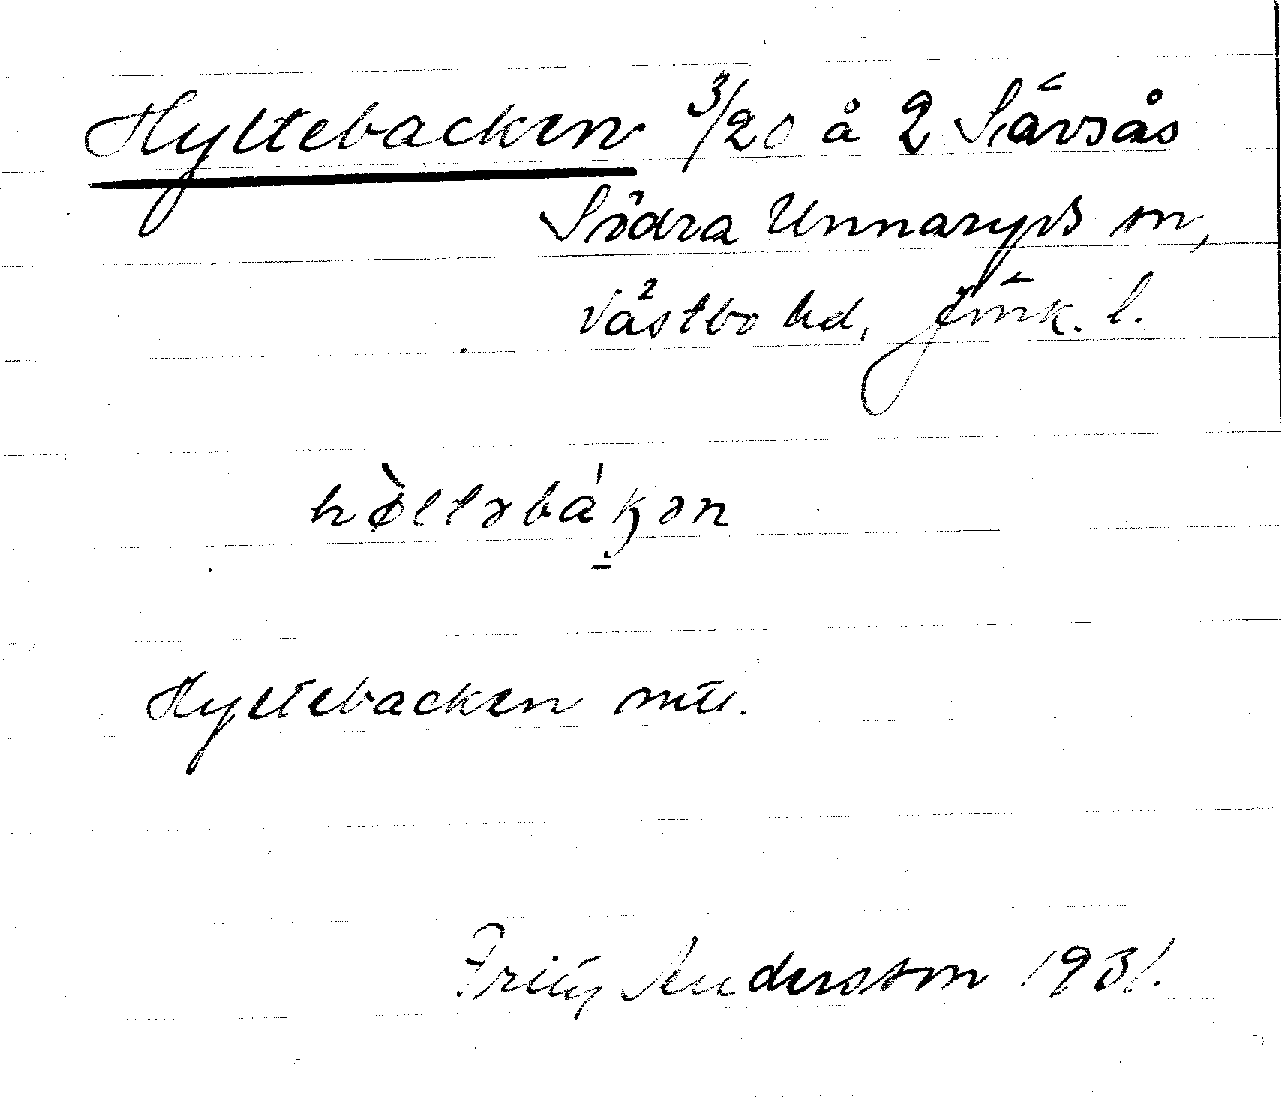 Hyltebacken 3/20 å 2 Sävsås
Södra Unnaryds sn,
Västbo hd, Jönk. l.
hø̀ltəbákən
Hyltebacken mtl.
Fritz Andersson 1931.